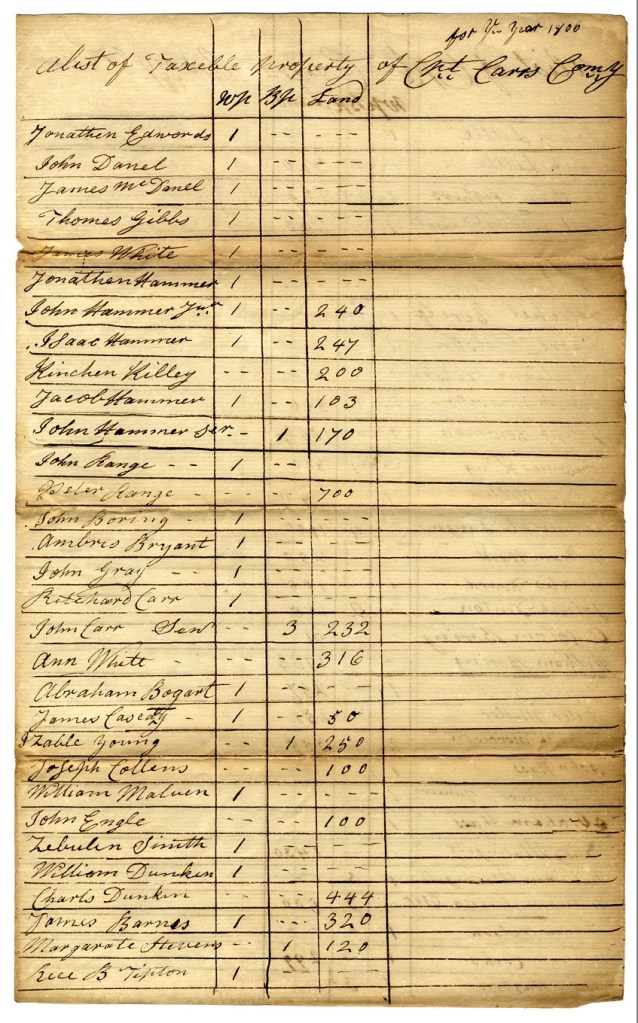 for Ye Year 1800
A list of Taxeble Property of Cpt Carrs Comy
WP BP Land
Jonathen Edwords 1 -- -----
John Danel 1 -- ---
James Mc Danel 1 -- ---
Thomes Gibbs 1 -- ---
James White 1 -- ---
Jonathen Hammer 1 -- -----
John Hammer Junr 1 -- 240
Isaac Hammer 1 -- 247
Kinchen Killey -- -- 200
Jacob Hammer 1 -- 103
John Hammer Ser -- 1 170
John Range -- 1 --
Peter Range - -- --- 700
John Boring - 1 -- ---
Ambris Bryant 1 -- ---
John Gray -- 1 -- ---
Ritchard Carr 1 --
John Carr Senr -- 3 232
Ann White - -- -- 316
Abraham Bogart 1 -- ---
James Casedy - 1 -- 50
Izable Young -- 1 250
Joseph Collens -- -- 100
William Malven 1 -- ---
John Engle -- -- 100
Zebulin Smith 1 -- --
William Dunken 1 -- ---
Charls Dunkin -- -- 444
James Barnes 1 --- 320
Margarate Stevens -- 1 120
Rece B Tipton 1 - ---